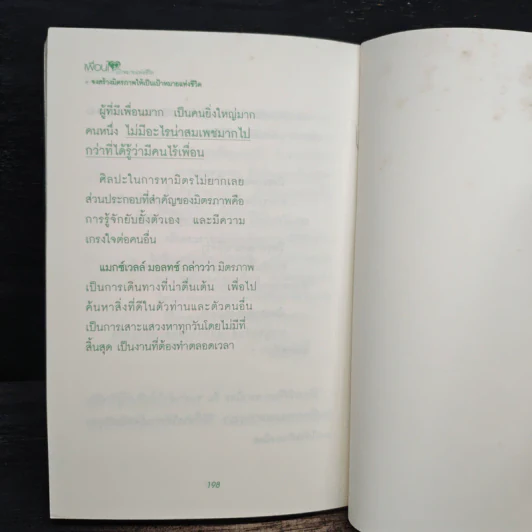 เพื่อน
- จงสร้างมิตรภาพให้เป็นเป้าหมายแห่งชีวิต
ผู้ที่มีเพื่อนมาก เป็นคนยิ่งใหญ่มาก
คนหนึ่ง ไม่มีอะไรน่าสมเพชมากไป
กว่าที่ได้รู้ว่ามีคนไร้เพื่อน
ศิลปะในการหามิตรไม่ยากเลย
ส่วนประกอบที่สำคัญของมิตรภาพคือ
การรู้จักยับยั้งตัวเอง และมีความ
เกรงใจต่อคนอื่น
แมกซ์เวลล์ มอลทซ์ กล่าวว่า มิตรภาพ
เป็นการเดินทางที่น่าตื่นเต้น เพื่อไป
ค้นหาสิ่งที่ดีในตัวท่านและตัวคนอื่น
เป็นการเสาะแสวงหาทุกวันโดยไม่มีที่
สิ้นสุด เป็นงานที่ต้องทำตลอดเวลา
198